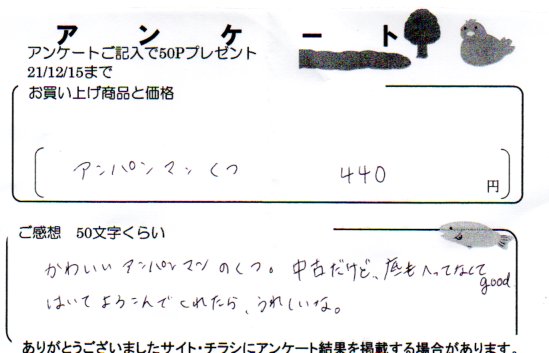 アンケート
アンケートご記入で50Pプレゼント
21/12/15まで
お買い上げ商品と価格
アンパンマンくつ 440 円
ご感想 50文字くらい
かわいいアンパンマンのくつ。中古だけど、底もへってなくてgood.
はいてよろこんでくれたら、うれしいな。
ありがとうございましたサイト・チラシにアンケート結果を掲載する場合があります。